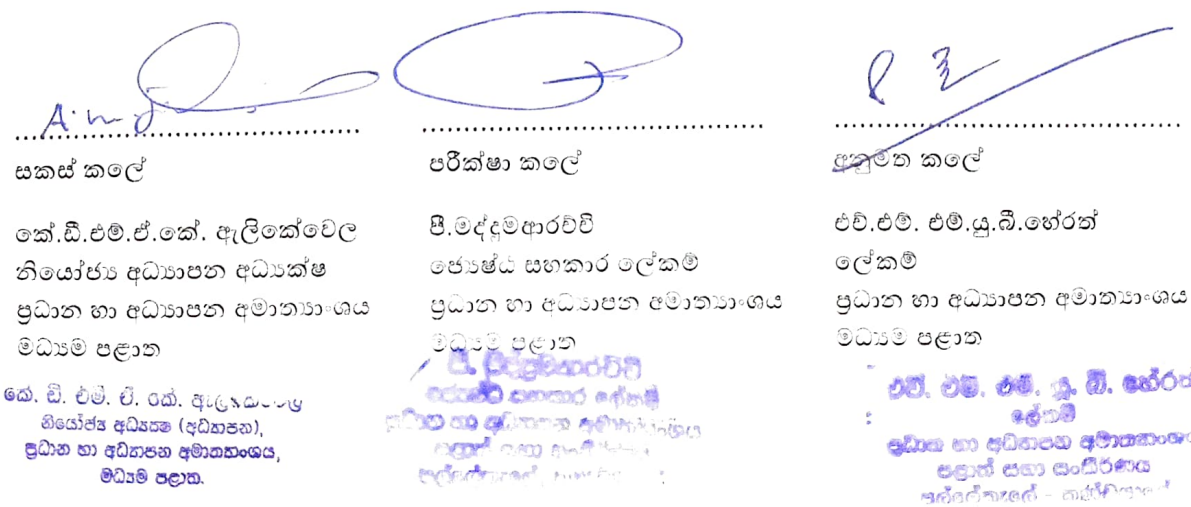 සකස් කලේ
කේ.ඩී.එම්.ඒ.කේ. ඇලිකේවෙල
නියෝජ්‍ය අධ්‍යාපන අධ්‍යක්ෂ
ප්‍රධාන හා අධ්‍යාපන අමාත්‍යාංශය
මධ්‍යම පළාත
කේ. ඩී. එම්. ඒ. කේ.
නියෝජ්‍ය අධ්‍යක්ෂ (අධ්‍යාපන),
ප්‍රධාන හා අධ්‍යාපන අමාත්‍යාංශය,
මධ්‍යම පළාත.
පරීක්ෂා කලේ
පී.මද්දුමආරච්චි
ජ්‍යෙෂ්ඨ සහකාර ලේකම්
ප්‍රධාන හා අධ්‍යාපන අමාත්‍යාංශය
මධ්‍යම පළාත
ජ්‍යෙෂ්ඨ සහකාර ලේකම්
ප්‍රධාන හා අධ්‍යාපන අමාත්‍යාංශය
පළාත් සභා
අනුමත කලේ
එච්.එම්. එම්.යූ.බී.හේරත්
ලේකම්
ප්‍රධාන හා අධ්‍යාපන අමාත්‍යාංශය
මධ්‍යම පළාත
එච්. එම්. එම්. යූ. බී. හේරත්
ලේකම්
ප්‍රධාන හා අධ්‍යාපන අමාත්‍යාංශය
පළාත් සභා සංකීර්ණය
පල්ලේකැලේ -